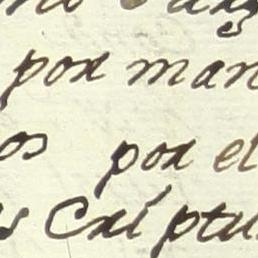 por man
os por el
s Criptu